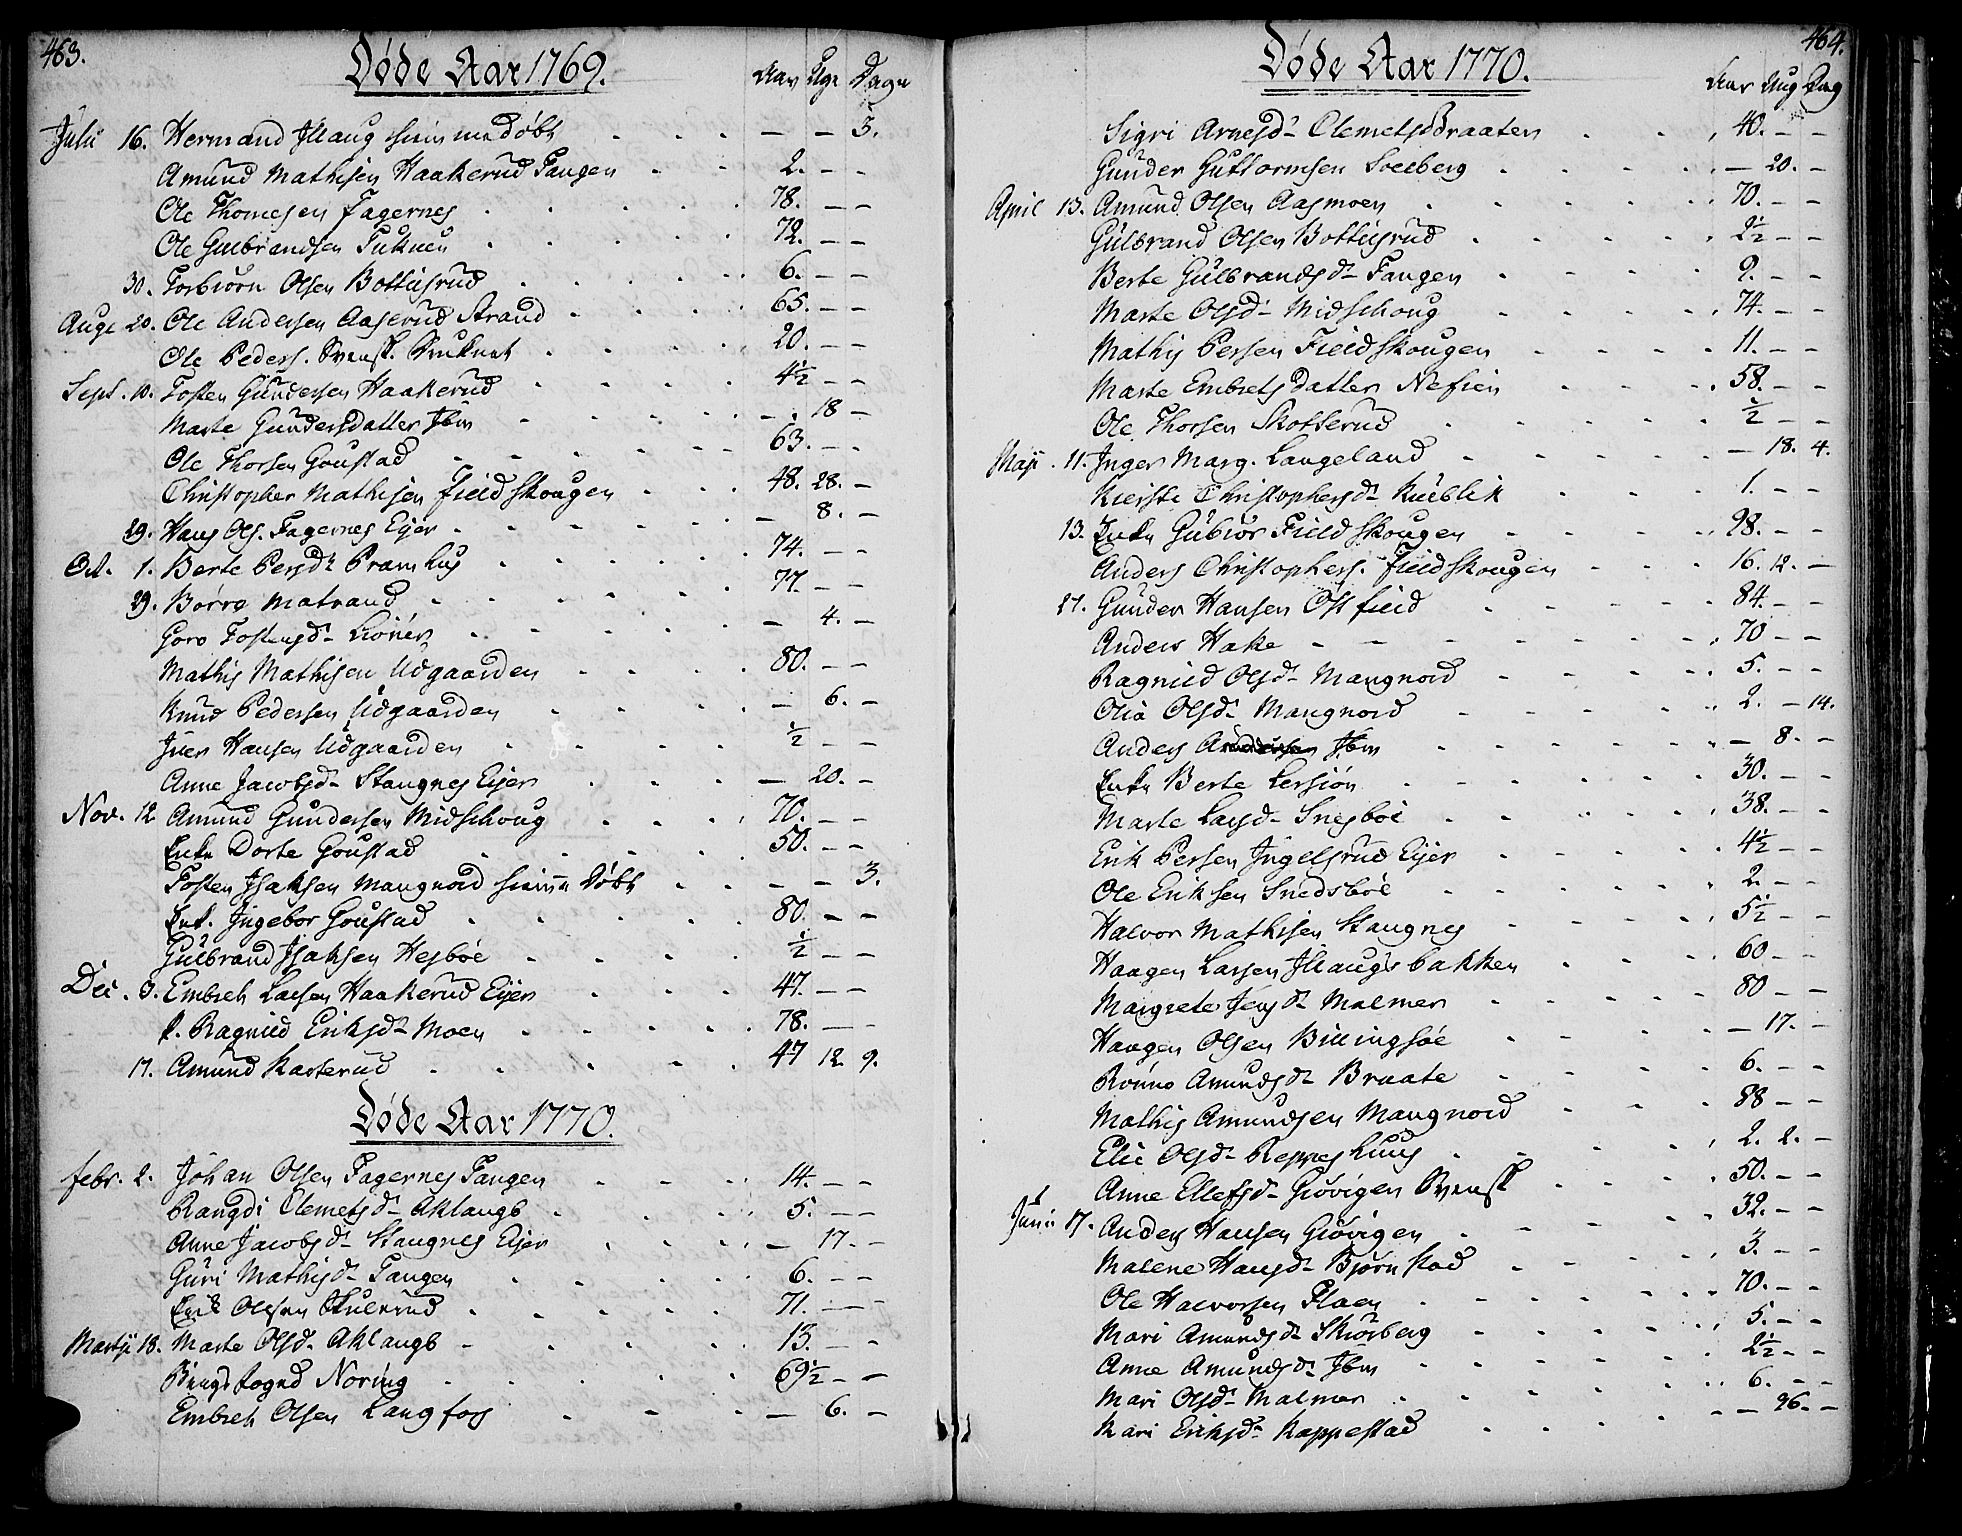 463.
Døde Aar 1769.
Aar Uge Dage
Julii 16. Hermand Illaug hiemmedøbt — — 3.
Amund Mathisen Haakerud Tangen 2. — —
Ole Thomesen Fagernes 78. — —
Ole Gulbrandsen 72. — —
30. Torbiörn Olsen Bottilsrud 6. — —
Augt 20. Ole Andersen Aaserud Strand 65. — —
Ole Peders. Svensk. 20. — —
Sept. 10. Tosten Gundersen Haakerud 4½ — —
Marte Gundersdatter Ibm — 18 —
Ole Thorsen Goustad 63. — —
Christopher Mathisen Fieldskougen 48. 28. —
29. Hans Ols. Fagernes Eijer — 8. —
Oct. 1. Berte Persdr Pramhus 74. — —
29. Börre Matrand 77. — —
Goro Tostensd. — 4. —
Mathis Mathisen Udgaarden 80. — —
Knud Pedersen Udgaarden — 6. —
Iver Hansen Udgaarden ½ — —
Anne Jacobsd. Stangnes Eijer — 20. —
Nov. 12 Amund Gundersen Midschoug 70. — —
Enke Dorte Goustad 50. — —
Tosten Isaksen Mangnord hiemedöbt — — 3.
Enk. Ingebor Goustad 80. — —
Gulbrand Isaksen Hesböe ½ — —
Dec. 3. Embret Larsen Haakerud Eijer 47. — —
E. Ragnild Eriksdr Moen 78. — —
17. Amund Kasterud 47 12. 9.
Døde Aar 1770.
Febr. 2. Johan Olsen Fagernes Tangen 14. — —
Rangdi Clemetsd. Aklangb 5. — —
Anne Jacobsd. Stangnes Eijer — 17. —
Guri Mathisdr Tangen 6. — —
Erik Olsen 71. — —
Martji 18. Marte Olsd. Aklangb 13. — —
Noring 69½ — —
Embret Olsen Langfos — 6. —
464.
Døde Aar 1770.
Aar Ug Dag
Sigri Arnesdr Clemetsbraaten 40. — —
Gunder Guttormsen Soelberg — 20. —
April 13. Amund Olsen Aasmoen 70. — —
Gulbrand Olsen Bottilsrud 2½ — —
Berte Gulbrandsdr Tangen 9. — —
Marte Olsdr Midschoug 74. — —
Mathis Persen Fieldskougen 11. — —
Marte Embretsdatter Nefien 58. — —
Ole Thorsen Skotterud ½ — —
Maji 11. Inger Marg. Langeland — 18. 4.
Kierste Christophersdr 1. — —
13. Enke Gubiör Fieldskougen 98. — —
Anders Christophers. Fieldskougen 16. 12. —
27. Gunder Hansen Ostfield 84. — —
Anders Hake 70 — —
Ragnild Olsdr Mangnord 5. — —
Olia Olsdr Mangnord 2. — 14.
Anders Ibm — 8. —
Enke Berte Lersiön 30. — —
Marte Larsd. Snesböe 38. — —
Erik Persen Ingelsrud Eijer 4½ — —
Ole Eriksen Snedsböe 2. — —
Halvor Mathisen Stangnes 5½ — —
Haagen Larsen Illaugsbakken 60 — —
Margrete Jensdr Malmer 80 — —
Haagen Olsen Billingsöe — 17. —
Amundsdr Braate 6. — —
Mathis Amundsen Mangnord 88 — —
Elie Olsd. Reppeshuus 2. 2. —
Anne Ellefsd. Giövigen Svensk 50. — —
Junii 17. Anders Hansen Giövigen 32. — —
Malene Hansdr Björnstad 3. — —
Ole Halvorsen Flaen 70. — —
Mari Amundsdr Skiörberg 5. — —
Anne Amundsdr Ibm 2½ — —
Mari Olsdr Malmer 6. — —
Kari Eriksdr Kappestad — 26. —